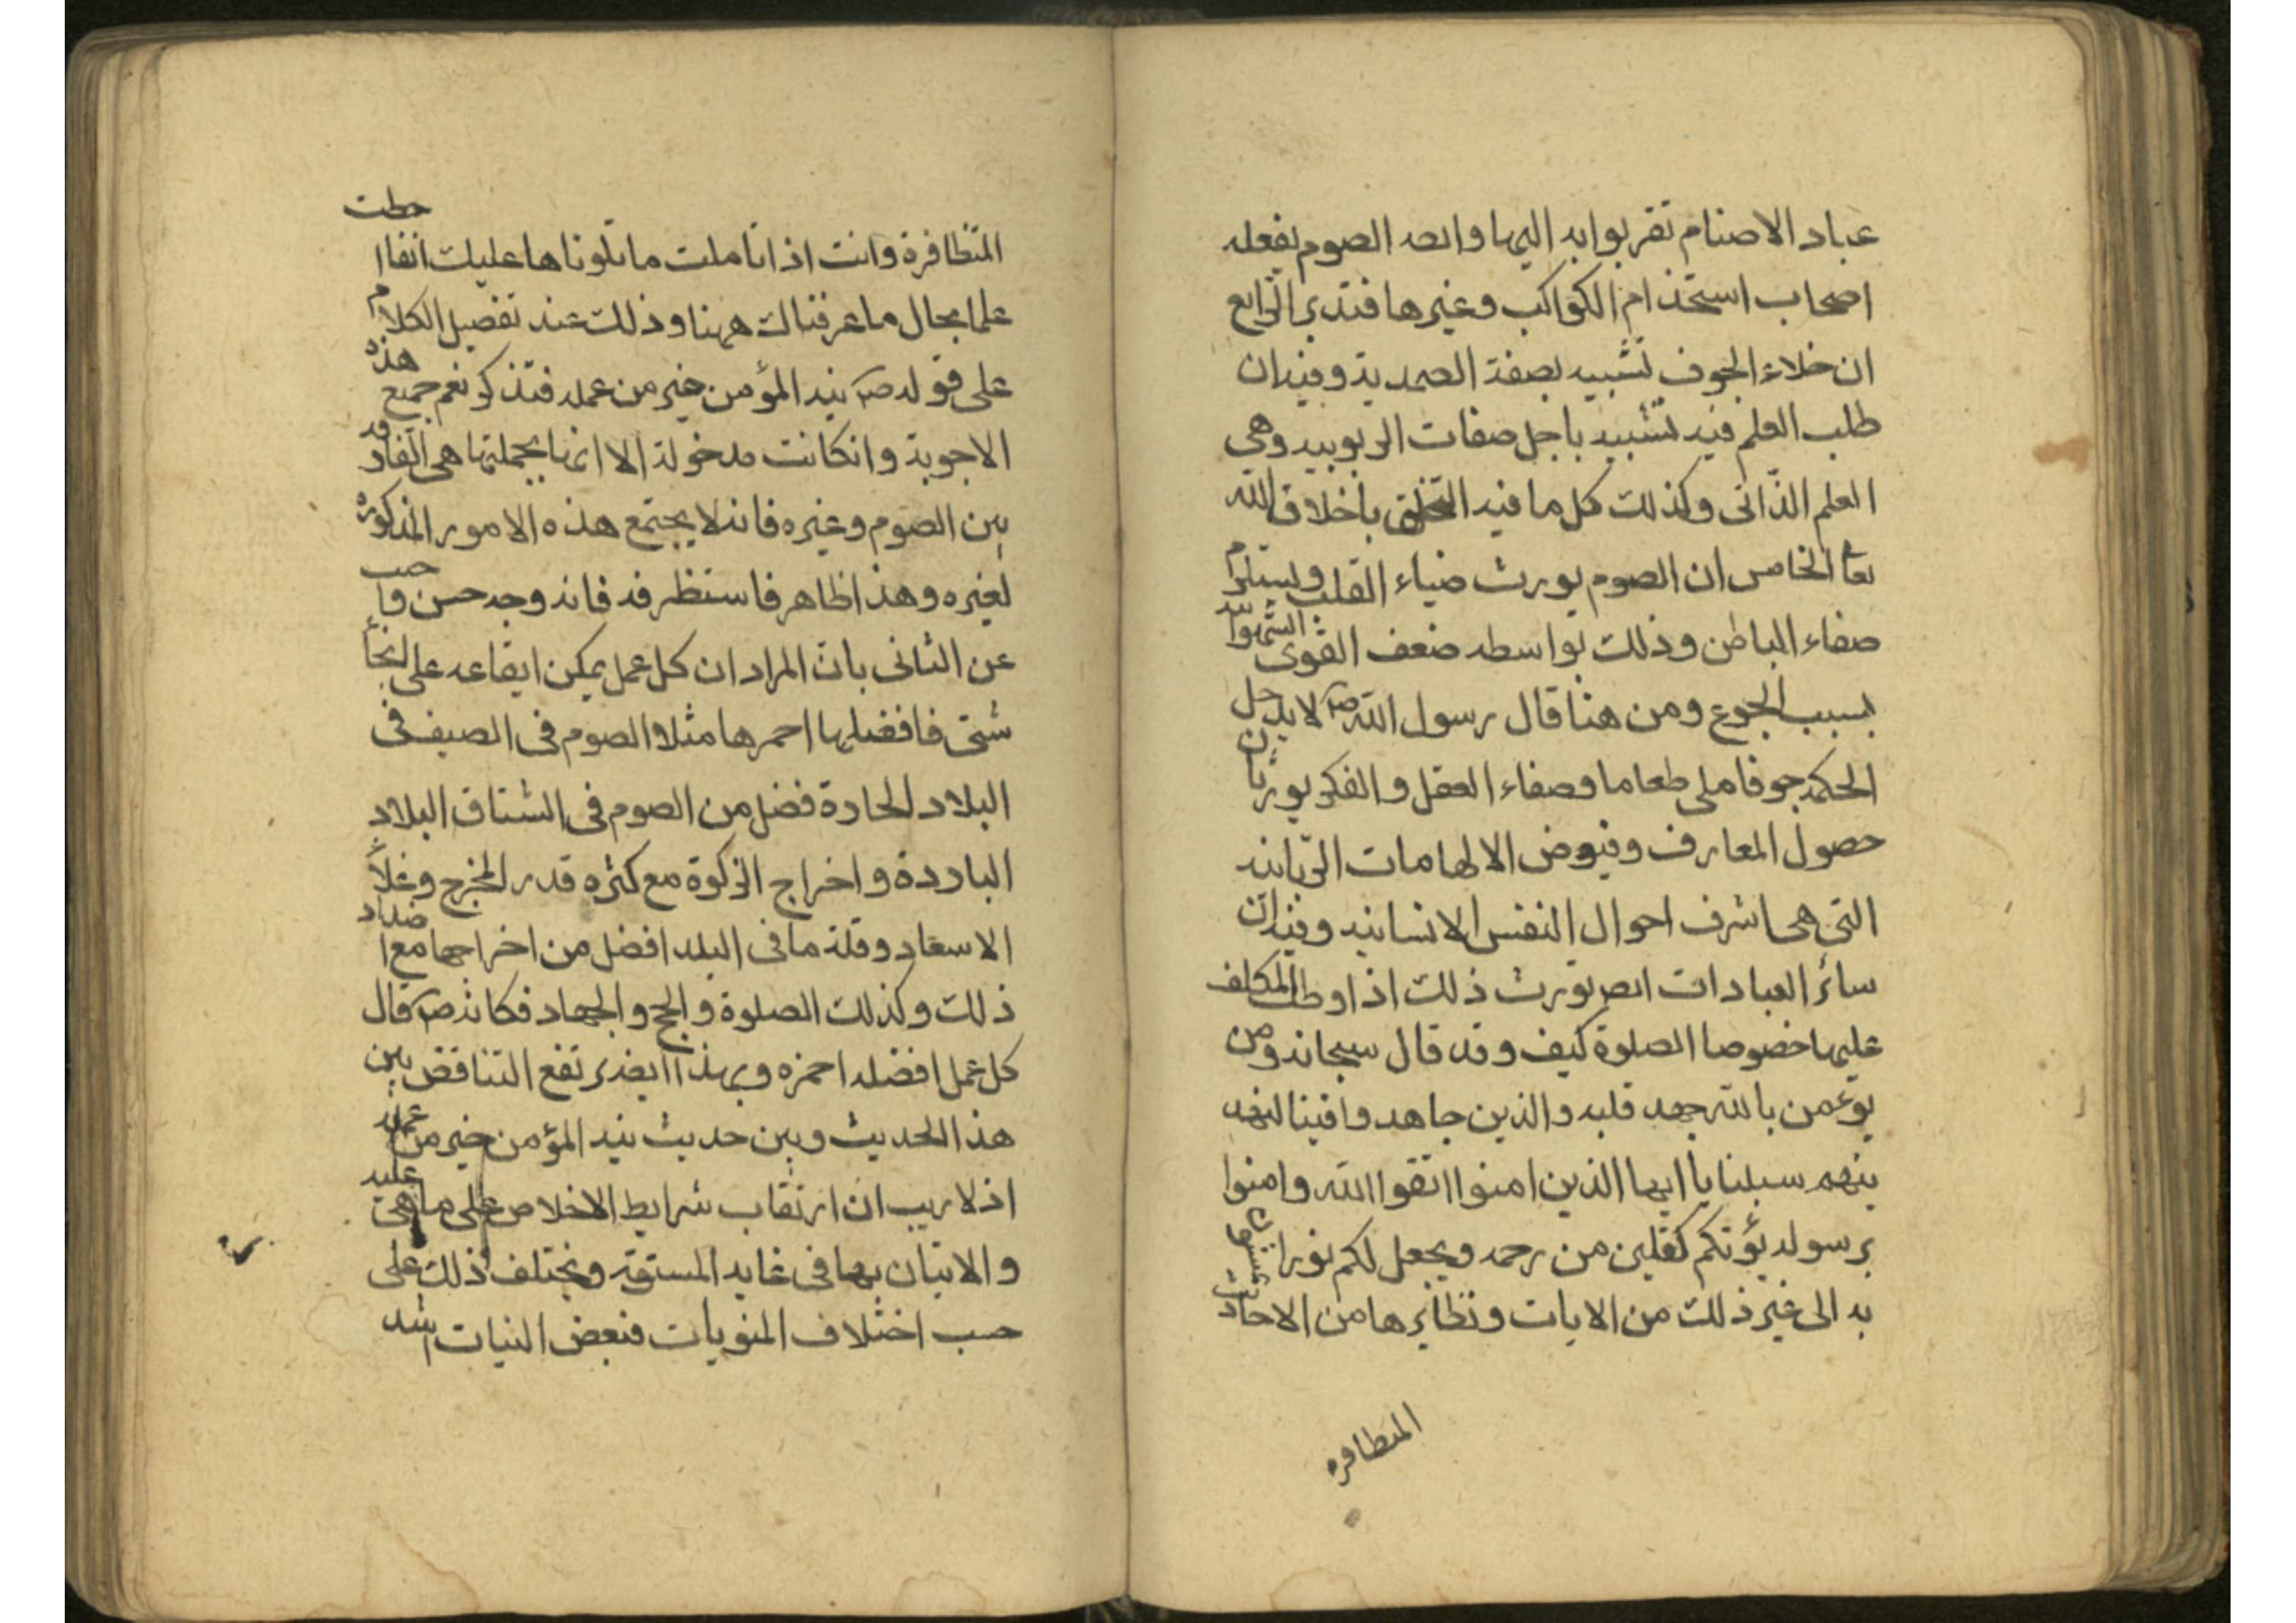 عباد الاصنام تقربوا به اليها وايضا الصوم يفعله
اصحاب استخدام الكواكب وغيرها فتدبر الرابع
ان خلاء الجوف تشبيه بصفة الصمدية وفيه ان
طلب العلم فيه تشبيه باجل صفات الربوبيه وهي
العلم الذاتى وكذلك كل ما فيه التخلق باخلاق الله
تعا الخامس ان الصوم يورث ضياء القلب ويستلزم
صفاء الباطن وذلك بواسطه ضعف القوى الشهوانيه
بسبب الجوع ومن هنا قال رسول الله ص لا يدخل
الحكمه جوفا ملى طعاما وصفاء العقل والفكر يورثان
حصول المعارف وفيوض الالهامات الربانيه
التى هى اشرف احوال النفس الانسانيه وفيه ان
سائر العبادات ايض تورث ذلك اذا وظب المكلف
عليها خصوصا الصلوة كيف وقد قال سبحانه ومن
يؤمن بالله يهد قلبه والذين جاهدوا فينا لنهد
ينهم سبلنا يا ايها الذين امنوا اتقوا الله وامنوا
برسوله يؤتكم كفلين من رحمه ويجعل لكم نورا تمشون
به الى غير ذلك من الايات ونظايرها من الاحاديث
المتظافره
المتظافرة وانت اذا تاملت ما تلوناها عليك انفا احطت
علما بحال ما عرفناك ههنا وذلك عند تفصيل الكلام
على قوله ص نيه المؤمن خير من عمله فتذكر نعم جميع هذه
الاجوبة وانكانت مدخولة الا انها بجملتها هى الفارقه
بين الصوم وغيره فانه لا يجتمع هذه الامور المذكوره
لغيره وهذا ظاهر فاستظرفه فانه وجه حسن واجيب
عن الثانى بان المراد ان كل عمل يمكن ايقاعه على انحاء
شتى فافضلها احمزها مثلا الصوم فى الصيف فى
البلاد الحادة فضل من الصوم فى الشتا فى البلاد
الباردة واخراج الزكوة مع كثره قدر المخرج وغلاء
الاسعاد وقلة ما فى البلد افضل من اخراجها مع اضداد
ذلك وكذلك الصلوة والحج والجهاد فكانه ص قال
كل عمل افضله احمزه وبهذا ايض يرتفع التناقض بين
هذا الحديث وبين حديث نيه المؤمن خير من عمله
اذ لا ريب ان ارتقاب شرايط الاخلاص على ما هى عليه
والاتيان بها فى غايه المشقه ويختلف ذلك على
حسب اختلاف المنويات فبعض النيات اشد